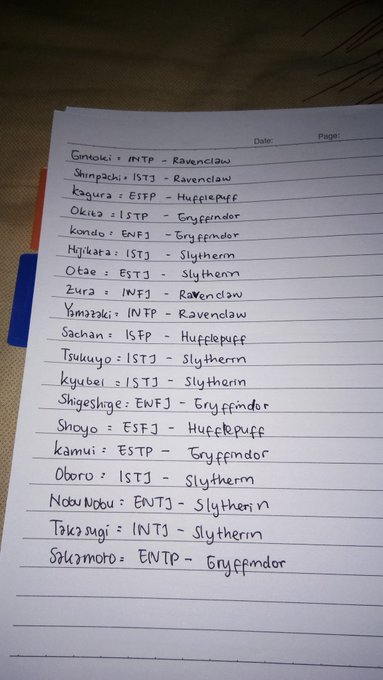 Date: Page:
Gintoki = INTP - Ravenclaw
Shinpachi = ISTJ - Ravenclaw
Kagura = ESFP - Hufflepuff
Okita = ISTP - Gryffindor
Kondo = ENFJ - Gryffindor
Hijikata = ISTJ - Slytherin
Otae = ESTJ - Slytherin
Zura = INFJ - Ravenclaw
Yamazaki = INFP - Ravenclaw
Sachan = ISFP - Hufflepuff
Tsukuyo = ISTJ - Slytherin
Kyubei = ISTJ - Slytherin
Shigeshige = ENFJ - Gryffindor
Shoyo = ESFJ - Hufflepuff
Kamui = ESTP - Gryffindor
Oboro = ISTJ - Slytherin
NobuNobu = ENTJ - Slytherin
Takasugi = INTJ - Slytherin
Sakamoto = ENTP - Gryffindor